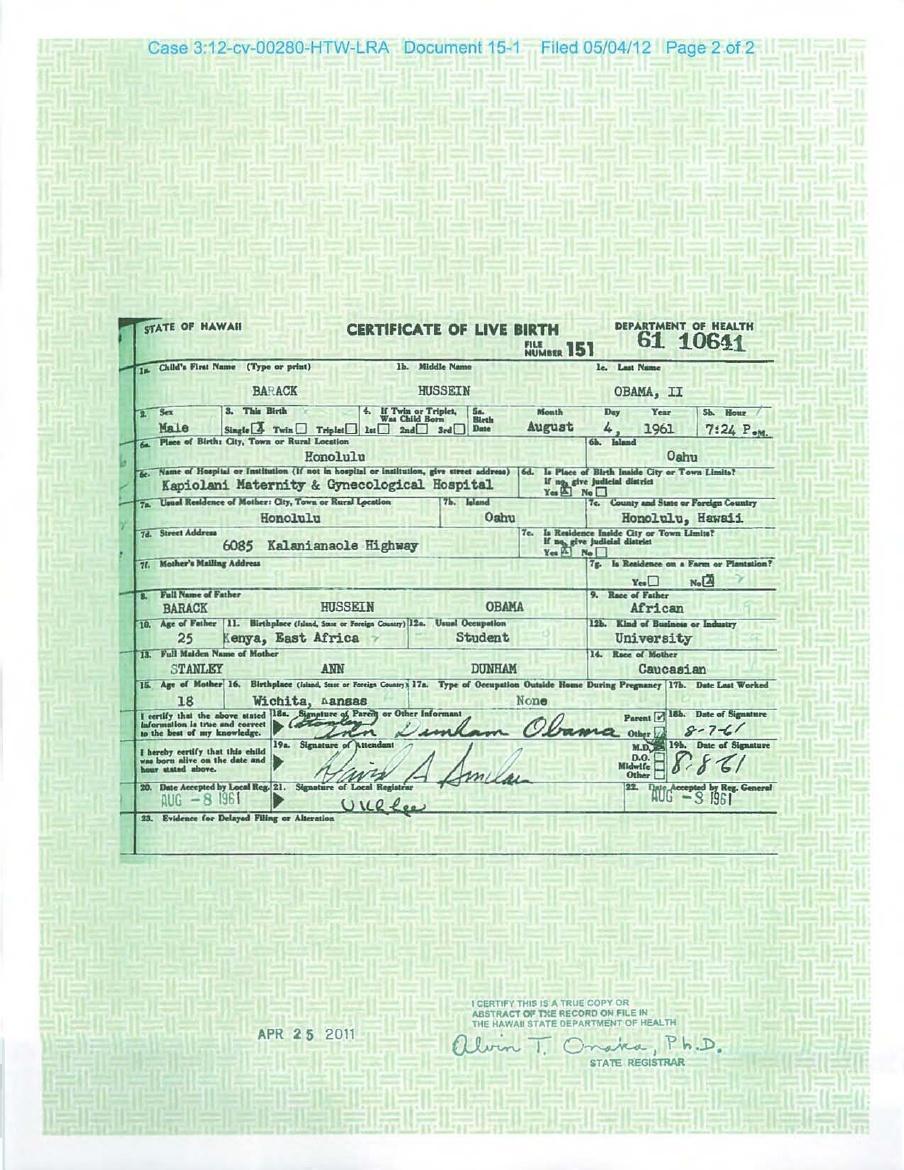 Case 3:12-cv-00280-HTW-LRA Document 15-1 Filed 05/04/12 Page 2 of 2
STATE OF HAWAII CERTIFICATE OF LIVE BIRTH DEPARTMENT OF HEALTH
FILE NUMBER 151 61 10641
1a. Child's First Name (Type or print) 1b. Middle Name 1c. Last Name
BARACK HUSSEIN OBAMA, II
2. Sex 3. This Birth 4. If Twin or Triplet, Was Child Born 5a. Birth Date Month Day Year 5b. Hour
Male Single X Twin Triplet 1st 2nd 3rd August 4, 1961 7:24 P.M.
6a. Place of Birth: City, Town or Rural Location 6b. Island
Honolulu Oahu
6c. Name of Hospital or Institution (If not in hospital or institution, give street address) 6d. Is Place of Birth Inside City or Town Limits?
If no, give judicial district
Kapiolani Maternity & Gynecological Hospital Yes X No
7a. Usual Residence of Mother: City, Town or Rural Location 7b. Island 7c. County and State or Foreign Country
Honolulu Oahu Honolulu, Hawaii
7d. Street Address 7e. Is Residence Inside City or Town Limits?
If no, give judicial district
6085 Kalanianaole Highway Yes X No
7f. Mother's Mailing Address 7g. Is Residence on a Farm or Plantation?
Yes No X
8. Full Name of Father 9. Race of Father
BARACK HUSSEIN OBAMA African
10. Age of Father 11. Birthplace (Island, State or Foreign Country) 12a. Usual Occupation 12b. Kind of Business or Industry
25 Kenya, East Africa Student University
13. Full Maiden Name of Mother 14. Race of Mother
STANLEY ANN DUNHAM Caucasian
15. Age of Mother 16. Birthplace (Island, State or Foreign Country) 17a. Type of Occupation Outside Home During Pregnancy 17b. Date Last Worked
18 Wichita, Kansas None
I certify that the above stated information is true and correct to the best of my knowledge. 18a. Signature of Parent or Other Informant Parent Other 18b. Date of Signature
(Stanley) Ann Dunham Obama 8-7-61
I hereby certify that this child was born alive on the date and hour stated above. 19a. Signature of Attendant M.D. D.O. Midwife Other 19b. Date of Signature
David A Sinclair 8-8-61
20. Date Accepted by Local Reg. 21. Signature of Local Registrar 22. Date Accepted by Reg. General
AUG -8 1961 UKLee AUG -8 1961
23. Evidence for Delayed Filing or Alteration
APR 25 2011
I CERTIFY THIS IS A TRUE COPY OR
ABSTRACT OF THE RECORD ON FILE IN
THE HAWAII STATE DEPARTMENT OF HEALTH
Alvin T. Onaka, Ph.D.
STATE REGISTRAR